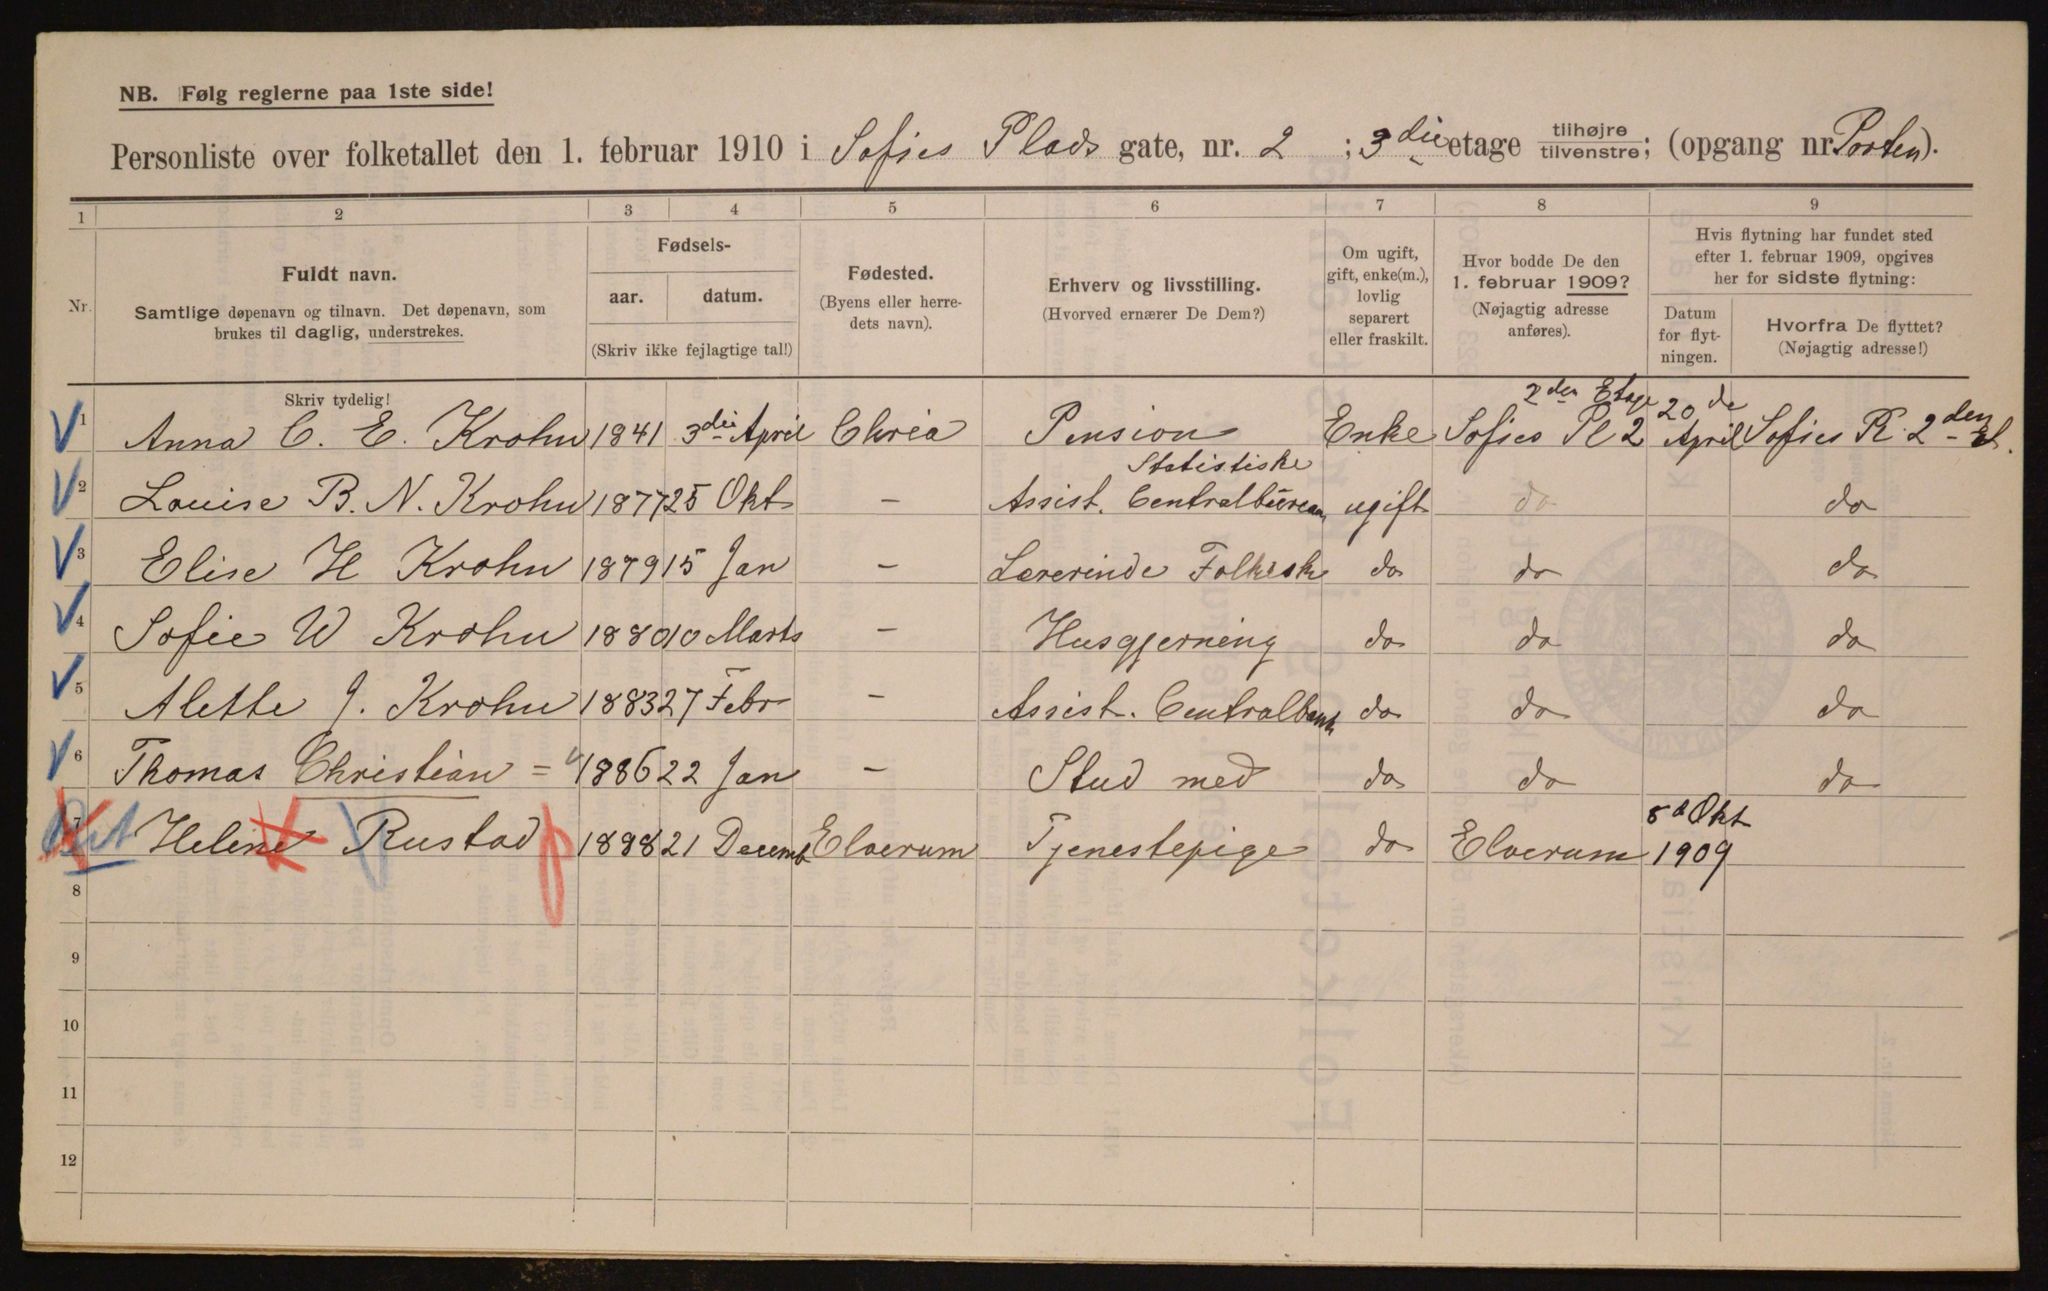 NB. Følg reglerne paa 1ste side!
Personliste over folketallet den 1. februar 1910 i Sofies Plads gate, nr. 2 ; 3die etage tilhøjre tilvenstre; (opgang nr. Porten).
1 2 3 4 5 6 7 8 9
Nr.
Fuldt navn.
Samtlige døpenavn og tilnavn. Det døpenavn, som
brukes til daglig, understrekes.
Fødsels-
aar. datum.
(Skriv ikke fejlagtige tal!)
Fødested.
(Byens eller herre-
dets navn).
Erhverv og livsstilling.
(Hvorved ernærer De Dem?)
Om ugift,
gift, enke(m.),
lovlig
separert
eller fraskilt.
Hvor bodde De den
1. februar 1909?
(Nøjagtig adresse
anføres).
Hvis flytning har fundet sted
efter 1. februar 1909, opgives
her for sidste flytning:
Datum
for flyt-
ningen.
Hvorfra De flyttet?
(Nøjagtig adresse!)
Skriv tydelig!
2den Etage 20de
1 Anna C. E. Krohn 1841 3die April Chria Pension Enke Sofies Pl 2 April Sofies Pl. 2den Et.
Statistiske
2 Louise B. N. Krohn 1877 25 Okt – Assist. Centralbureau ugift do do
3 Elise H Krohn 1879 15 Jan – Lærerinde Folkesk do do do
4 Sofie W Krohn 1880 10 Marts – Husgjerning do do do
5 Alette J. Krohn 1883 27 Febr – Assist. Centralbank do do do
6 Thomas Christian = 1886 22 Jan – Stud med do do do
8d Okt
7 Helene Rustad 1898 21 Decemb Elverum Tjenestepige do Elverum 1909
8
9
10
11
12